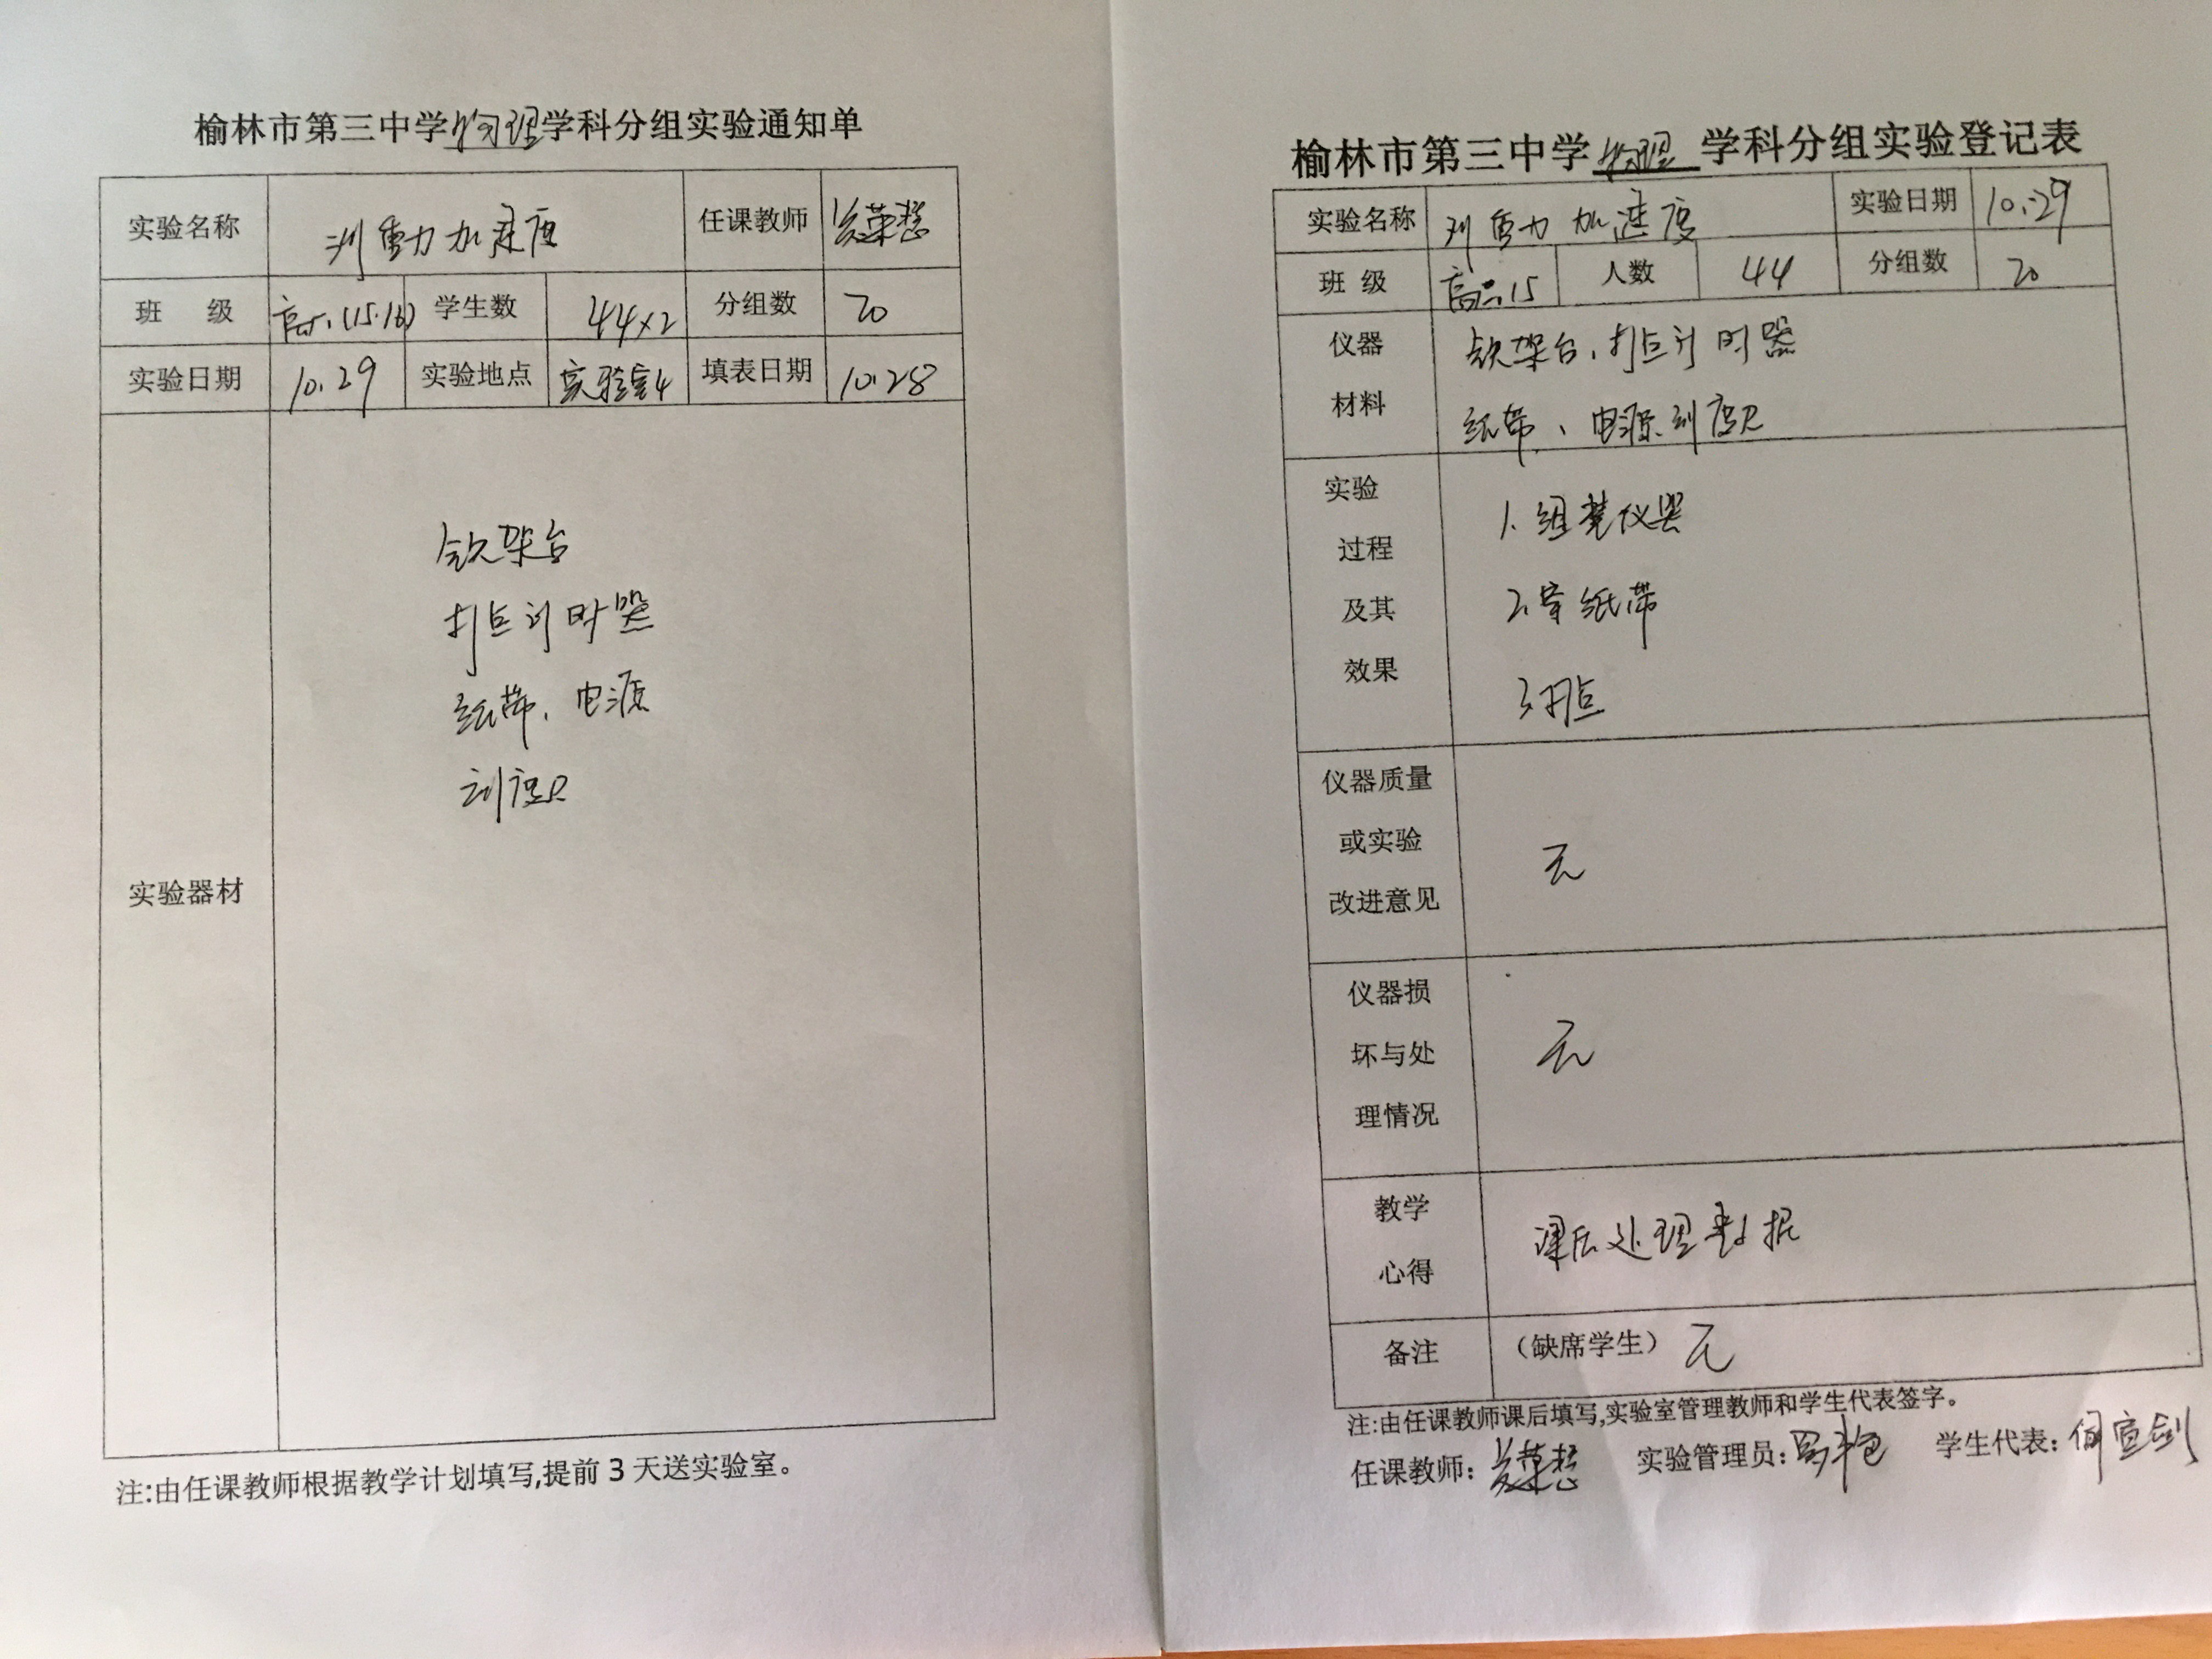 榆林市第三中学物理学科分组实验通知单
实验名称 测重力加速度 任课教师
班 级 (15.16) 学生数 44×2 分组数 20
实验日期 10.29 实验地点 实验室4 填表日期 10.28
实验器材
铁架台
打点计时器
纸带、电源
刻度尺
注:由任课教师根据教学计划填写,提前3天送实验室。
榆林市第三中学物理学科分组实验登记表
实验名称 测重力加速度 实验日期 10.29
班 级 15 人数 44 分组数 20
仪器
材料
铁架台、打点计时器
纸带、电源、刻度尺
实验
过程
及其
效果
1.组装仪器
2.穿纸带
3.打点
仪器质量
或实验
改进意见
无
仪器损
坏与处
理情况
无
教学
心得
课后处理数据
备注 (缺席学生) 无
注:由任课教师课后填写,实验室管理教师和学生代表签字。
任课教师: 实验管理员: 学生代表: